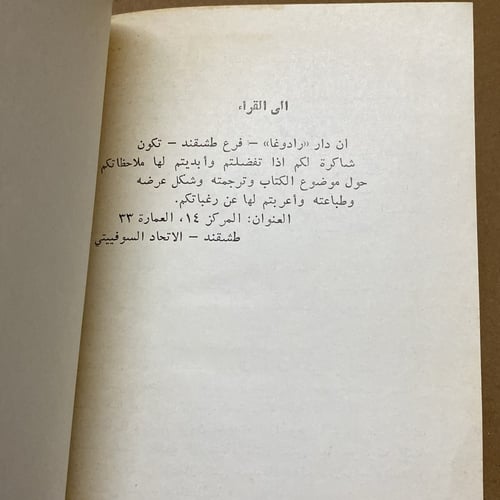 الى القراء
ان دار «رادوغا» – فرع طشقند – تكون
شاكرة لكم اذا تفضلتم وأبديتم لها ملاحظاتكم
حول موضوع الكتاب وترجمته وشكل عرضه
وطباعته وأعربتم لها عن رغباتكم.
العنوان: المركز ١٤، العمارة ٣٣
طشقند – الاتحاد السوفييتي